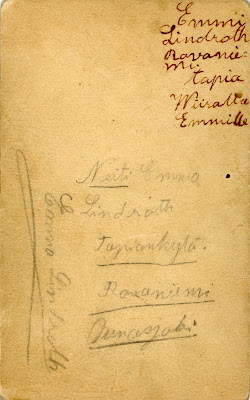 Emmi
Lindroth
Rovanie-
mi
tapia
Wiiralta
Emmille
Neiti Emma
Lindroth
Tapiankylä.
Rovaniemi
Emma Lindroth